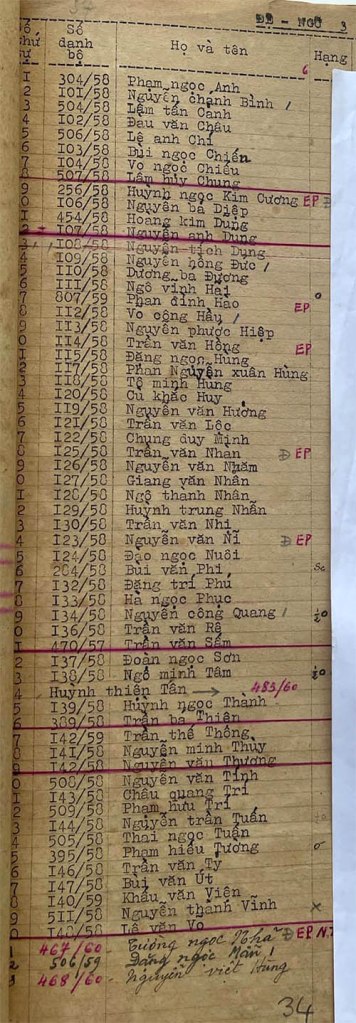 ĐỆ - NGŨ 3
Số danh bộ Họ và tên Hạng
304/58 Phạm ngọc Anh
I0I/58 Nguyễn chánh Bình
504/58 Lâm tấn Cảnh
I02/58 Đau văn Châu
506/58 Lê anh Chí
I03/58 Bùi ngọc Chiến
I04/58 Võ ngọc Chiểu
507/58 Lâm hủy Chung
9 256/58 Huỳnh ngọc Kim Cương EP Đ
0 I06/58 Nguyễn bá Diệp
I 454/58 Hoàng kim Dung
2 I07/58 Nguyễn anh Dung
3 I08/58 Nguyễn tích Dung
4 I09/58 Nguyễn hồng Đức
5 II0/58 Dương bá Đương
6 III/58 Ngô vinh Hai
7 807/59 Phan đình Hao o
8 II2/58 Võ công Hầu EP
9 II3/58 Nguyễn phước Hiệp
0 II4/58 Trần văn Hồng
I II5/58 Đặng ngọc Hùng EP
2 II7/58 Phan Nguyễn xuân Hùng
3 II8/58 Tô minh Hưng
4 I20/58 Cù khắc Huy
5 II9/58 Nguyễn văn Hương
6 I2I/58 Trần văn Lộc
7 I22/58 Chung duy Minh
8 I25/58 Trần văn Nhan Đ EP
9 I26/58 Nguyễn văn Nhăm
0 I27/58 Giang văn Nhân
I I28/58 Ngô thanh Nhân
2 I29/58 Huỳnh trung Nhẫn
3 I30/58 Trần văn Nhi
4 I23/58 Nguyễn văn Ni Đ EP
5 I24/58 Đào ngọc Nuôi
6 204/58 Bùi văn Phi
7 I32/58 Đặng trí Phú
8 I33/58 Hà ngọc Phục
9 I34/58 Nguyễn công Quang
0 I36/58 Trần văn Rê
I 470/57 Trần văn Sấm
2 I37/58 Đoàn ngọc Sơn
3 I38/58 Ngô minh Tâm
4 Huỳnh thiện Tân → 483/60
5 I39/58 Huỳnh ngọc Thành
6 389/58 Trần bá Thiện
7 I42/59 Trần thế Thông
8 I4I/58 Nguyễn minh Thùy
9 I42/58 Nguyễn văn Thương
0 508/58 Nguyễn văn Tính
I I43/58 Châu quang Trí
2 509/58 Phạm hữu Trí
3 I44/58 Nguyễn trần Tuấn
4 505/58 Thái ngọc Tuấn
5 395/58 Phạm hiếu Tường o
6 I46/58 Trần văn Tỵ
7 I47/58 Bùi văn Út
8 I40/59 Khấu văn Viên
9 5II/58 Nguyễn thành Vinh x
0 I48/58 Lê văn Vo Đ EP N.T
1 467/60 Tường ngọc Nhã
2 506/59 Đặng ngọc Mẫn
3 468/60 Nguyễn viết Hùng
34